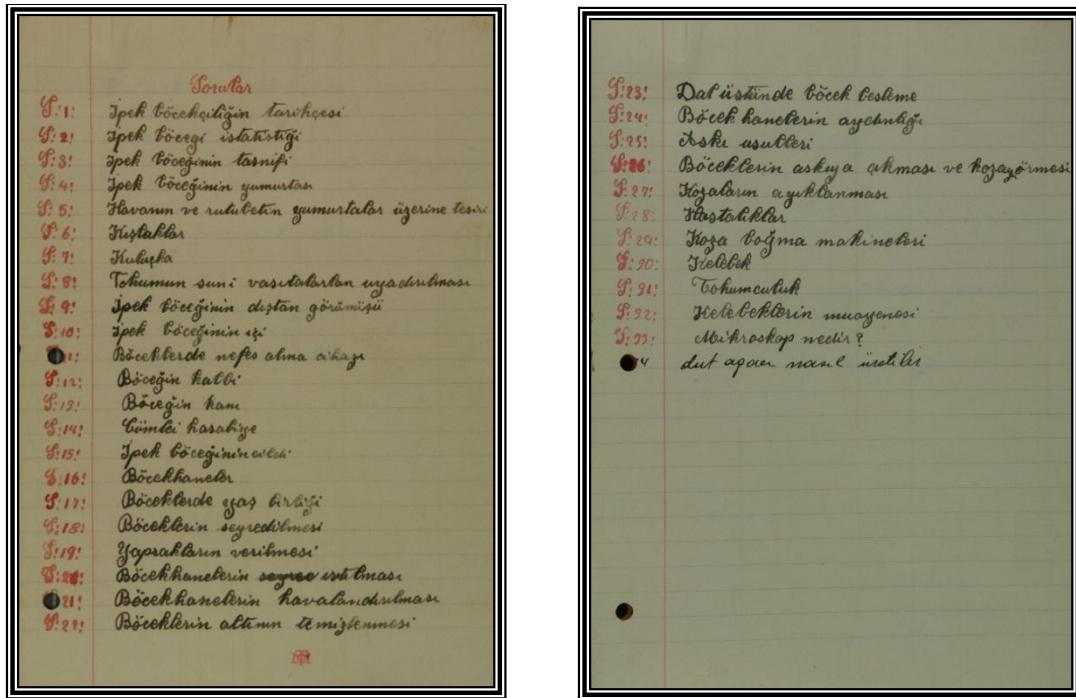 Sorular
S:1: İpek böcekçiliğin tarihçesi
S:2: İpek böceği istatistiği
S:3: İpek böceğinin tasnifi
S:4: İpek böceğinin yumurtası
S:5: Havanın ve rutubetin yumurtalar üzerine tesiri
S:6: Kışlaklar
S:7: Kuluçka
S:8: Tohumun suni vasıtalarlan uyadırılması
S:9: İpek böceğinin dıştan görümüşü
S:10: İpek böceğinin içi
11: Böceklerde nefes alma cihazı
S:12: Böceğin kalbi
S:13: Böceğin kanı
S:14: Cümlei hasabiye
S:15: İpek böceğinin cildi
S:16: Böcekhaneler
S:17: Böceklerde yaş birliği
S:18: Böceklerin seyredilmesi
S:19: Yaprakların verilmesi
S:20: Böcekhanelerin ısıtılması
21: Böcekhanelerin havalandırılması
S:22: Böceklerin altının temizlenmesi
S:23: Dal üstünde böcek besleme
S:24: Böcek hanelerin aydınlığı
S:25: Askı usulleri
S:26: Böceklerin askıya çıkması ve koza örmesi
S:27: Kozaların ayıklanması
S:28: Hastalıklar
S:29: Koza boğma makineleri
S:30: Kelebek
S:31: Tohumculuk
S:32: Kelebeklerin muayenesi
S:33: Mikroskop nedir?
4 dut ağacı nasıl üretilir